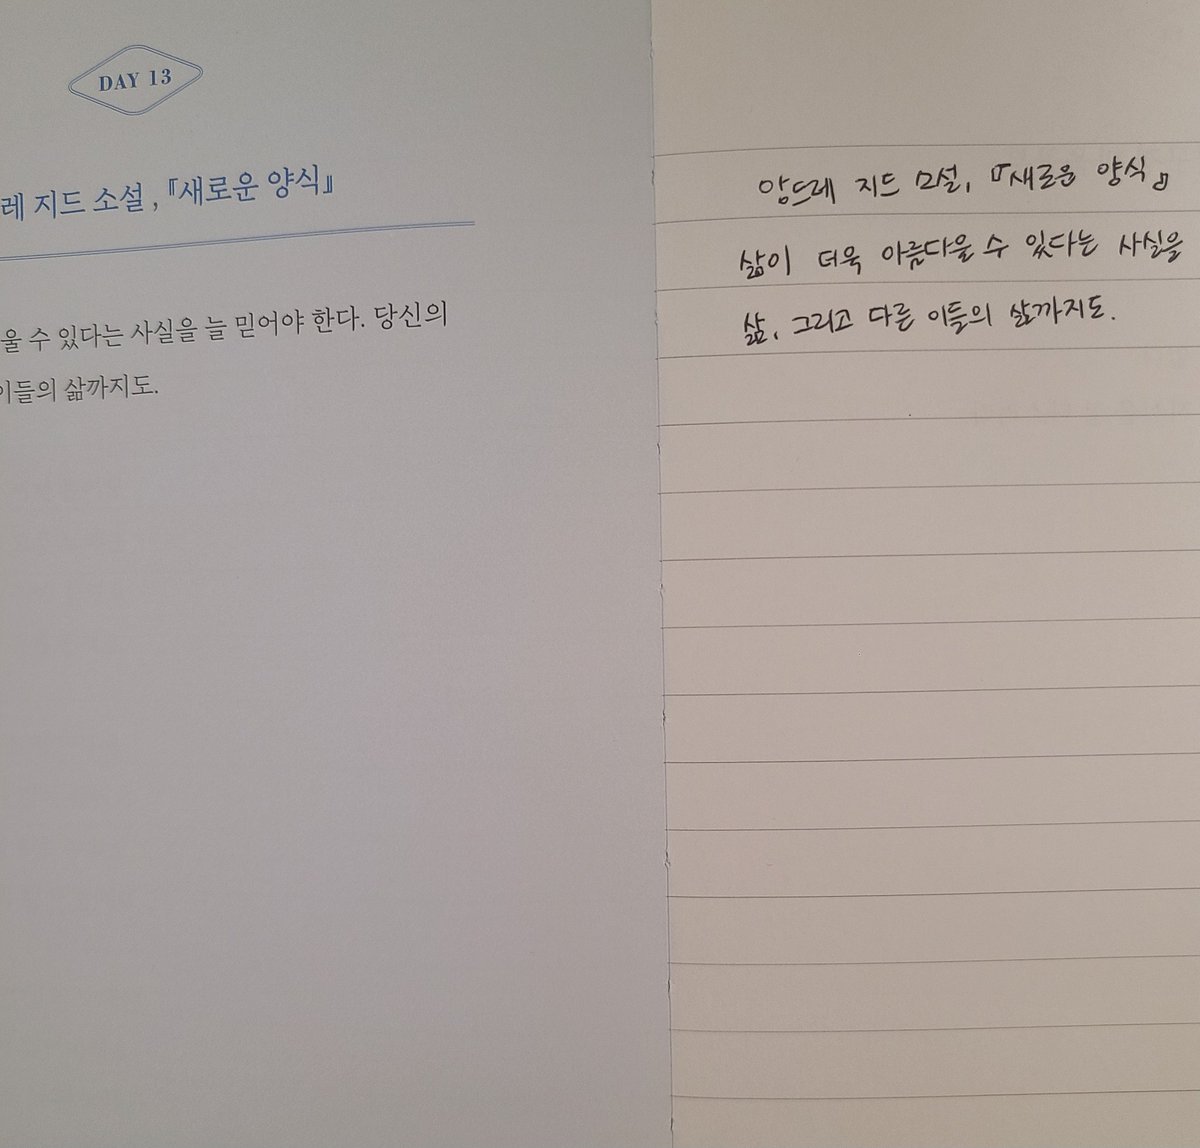 DAY 13
레 지드 소설, 『새로운 양식』
울 수 있다는 사실을 늘 믿어야 한다. 당신의
이들의 삶까지도.
앙드레 지드 소설, 『새로운 양식』
삶이 더욱 아름다울 수 있다는 사실을
삶, 그리고 다른 이들의 삶까지도.